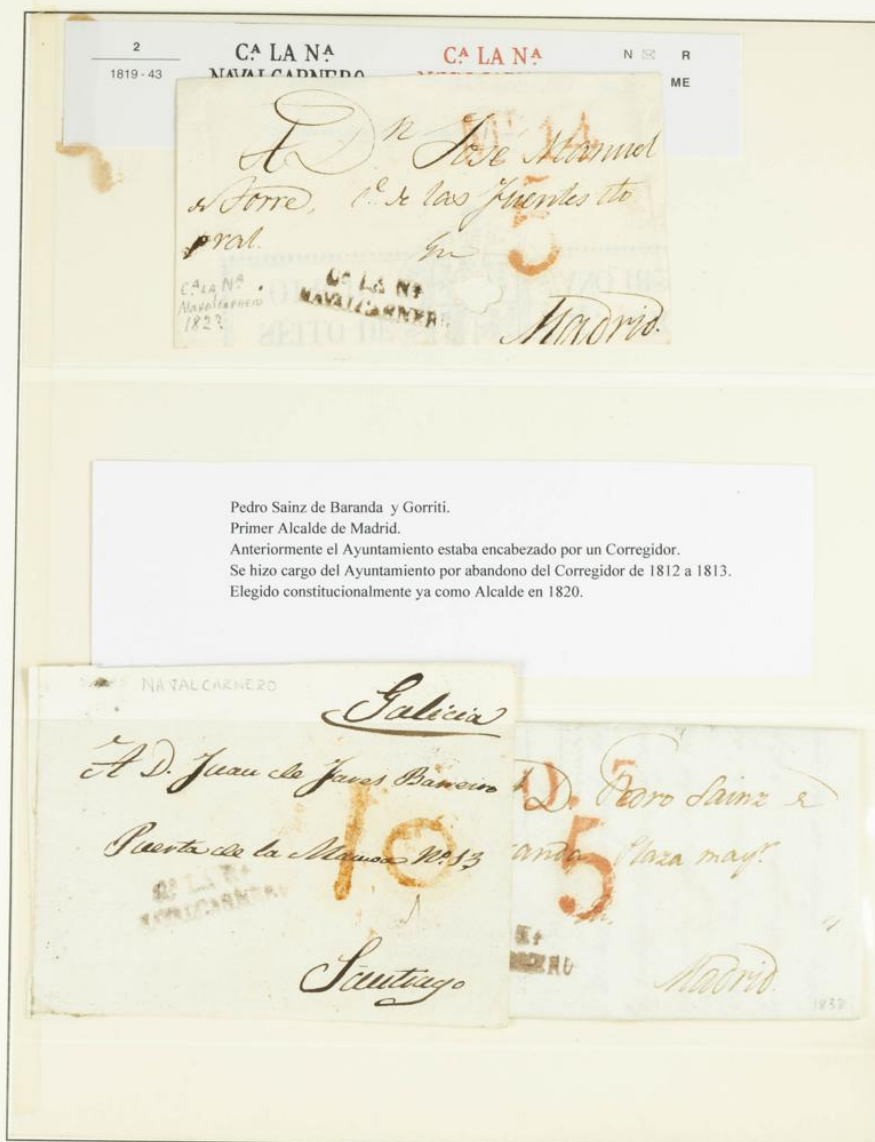 2
1819 - 43
Cᴬ LA Nᴬ
NAVALCARNERO
Cᴬ LA Nᴬ
N R
ME
A Dⁿ Jose Manuel
de Torre, Cᵉ de las Fuentes
pral.
5
Cᴬ LA Nᴬ
NAVALCARNERO
Cᴬ LA Nᴬ
NAVALCARNERO
Madrid.
Pedro Sainz de Baranda y Gorriti.
Primer Alcalde de Madrid.
Anteriormente el Ayuntamiento estaba encabezado por un Corregidor.
Se hizo cargo del Ayuntamiento por abandono del Corregidor de 1812 a 1813.
Elegido constitucionalmente ya como Alcalde en 1820.
NAVALCARNERO
Galicia
A D. Juan de
Puerta de la Nº 13
10
Cᴬ LA Nᴬ
NAVALCARNERO
Santiago
D. Pedro Sainz de
Plaza mayʳ.
5
Madrid.
1838